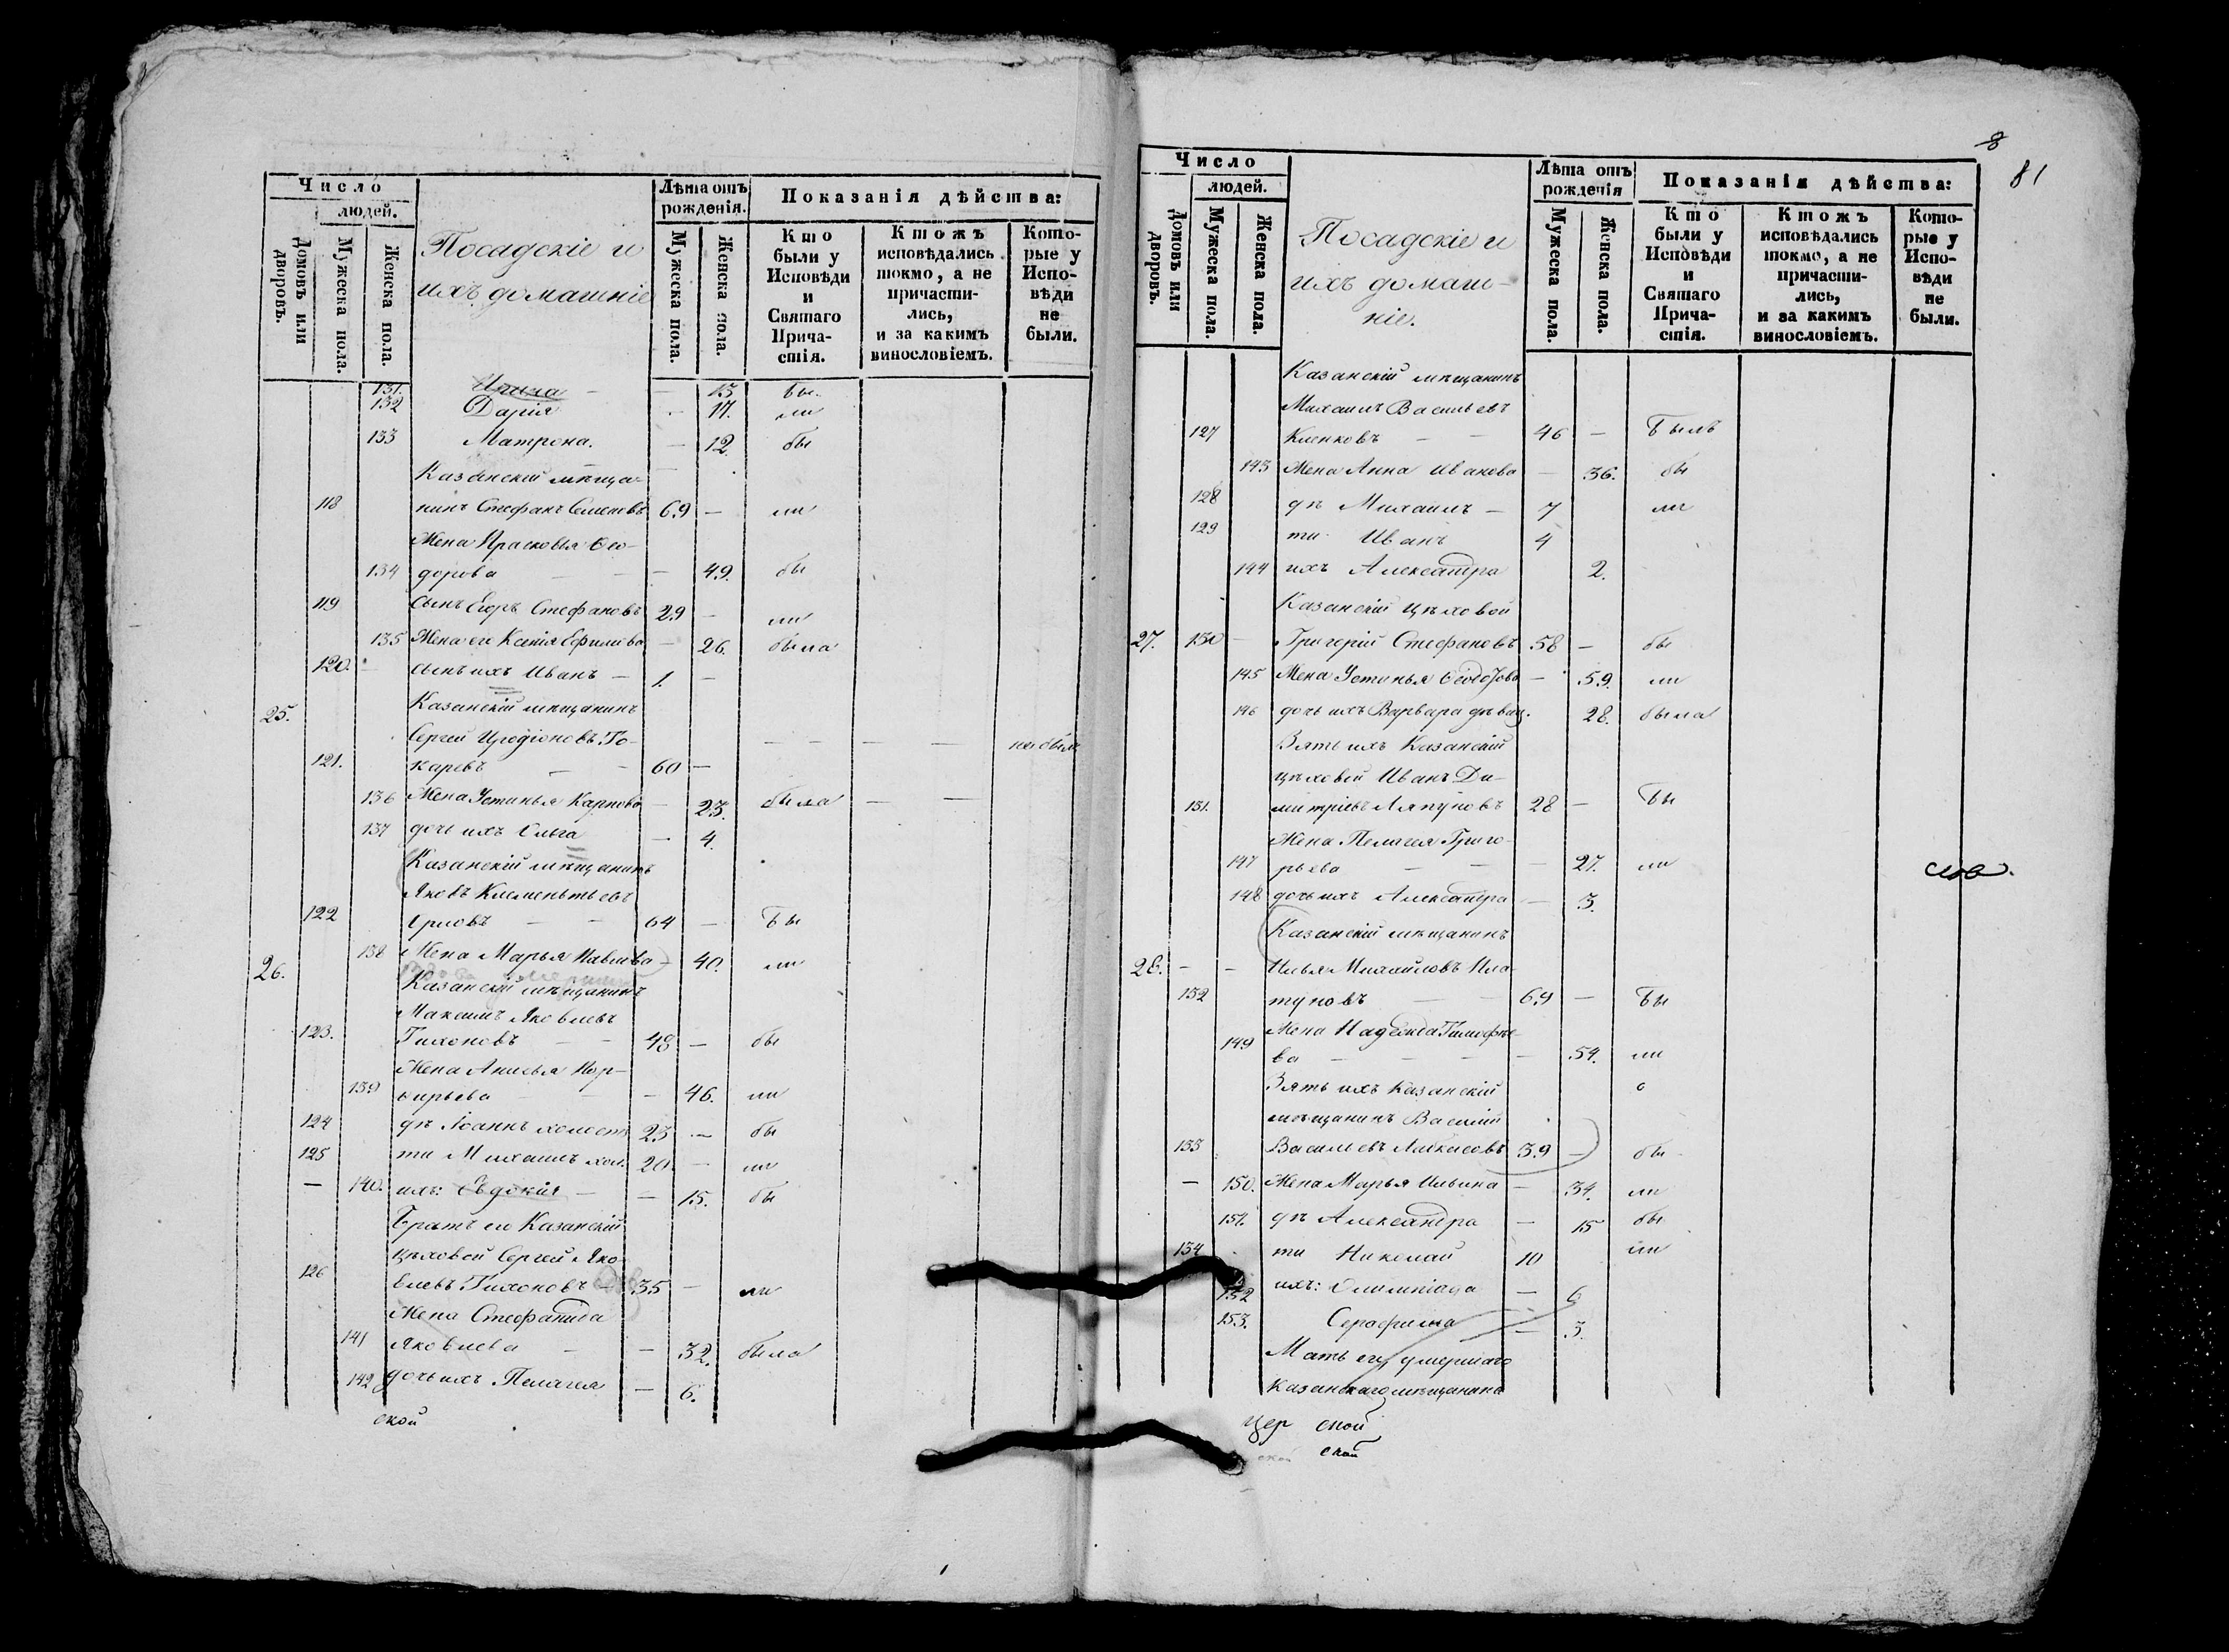 Число
людей.
Домовъ или дворовъ.
Мужеска пола.
Женска пола.
Посадскіе и
ихъ домашніе
Лѣта отъ рожденія.
Мужеска пола.
Женска пола.
Показанія дѣйства:
Кто были у Исповѣди и Святаго Причастія.
Ктожъ исповѣдались токмо, а не причастились, и за какимъ винословіемъ.
Которые у Исповѣди не были.
131. Ирина — — 15 бы
132 Дарія — 17. ли
133 Матрона. — 12. бы
Казанскій мѣща-
118 нинъ Стефанъ Семеновъ 69 — ли
Жена Прасковья Ѳео-
134 дорова — — — 49. бы
119 сынъ Егоръ Стефановъ 29 — ли
135 Жена его Ксенія Ефимова — 26. была
120. сынъ ихъ Иванъ — 1. —
25. Казанскій мѣщанинъ
Сергей Иродіоновъ То-
121. каревъ — — 60 — — — — — не былъ
136 Жена Устинья Карпова — 23. была — —
137 дочь ихъ Ольга — 4.
Казанскій мѣщанинъ
Яковъ Клементьевъ
122 — — 64 — бы
26. 138 Жена Марья Павлова — 40. ли
Казанскій мѣщанинъ
Максимъ Яковлевъ
123. Тихоновъ — — 48 — бы
Жена Анисья Пор-
139 фирьева — — — 46. ли
124 дѣ Іоаннъ холостъ 23 — бы
125 ти Михаилъ хол. 20 — ли
— 140. ихъ: Евдокія — — 15. бы
Братъ его Казанскій
цѣховой Сергей Яко-
126 влевъ Тихоновъ 35 — ли
Жена Стефанида
141 Яковлева — — 32. была
142 дочь ихъ Пелагея — 6.
ской
8
81
Число
людей.
Домовъ или дворовъ.
Мужеска пола.
Женска пола.
Посадскіе и
ихъ домаш-
ніе.
Лѣта отъ рожденія
Мужеска пола.
Женска пола.
Показанія дѣйства:
Кто были у Исповѣди и Святаго Причастія.
Ктожъ исповѣдались токмо, а не причастились, и за какимъ винословіемъ.
Которые у Исповѣди не были.
Казанскій мѣщанинъ
Михаилъ Васильевъ
127 Кленковъ — — 46 — былъ
143 Жена Анна Иванова — 36. бы
128 дѣ Михаилъ — 7 ли
129 ти Иванъ 4
144 ихъ Александра 2.
Казанскій цѣховой
27. 130 — Григорій Стефановъ 58 — бы
145 Жена Устинья Ѳедотова — 59. ли
146 дочь ихъ Варвара дѣвиц. 28. была
Зять ихъ Казанскій
цѣховой Иванъ Ди-
131. митріевъ Ляпуновъ 28 — бы
Жена Пелагея Григо-
147 рьева — — — 27. ли
148 дочь ихъ Александра — 3.
Казанскій мѣщанинъ
28. — — Илья Михайловъ Пла-
132 туновъ — — 69 — бы
Жена Надежда Тимофѣе-
149 ва — — — — 54. ли
Зять ихъ Казанскій
мѣщанинъ Василій
133 Васильевъ 39 — бы
— 150. Жена Марья Ильина — 34. ли
151. дѣ Александра — 15 бы
134 ти Николай 10 ли
152 ихъ: Олимпіада — 6
153. Серафима — 3.
Мать его, умершаго
Казанскаго мѣщанина
цер ской
ской